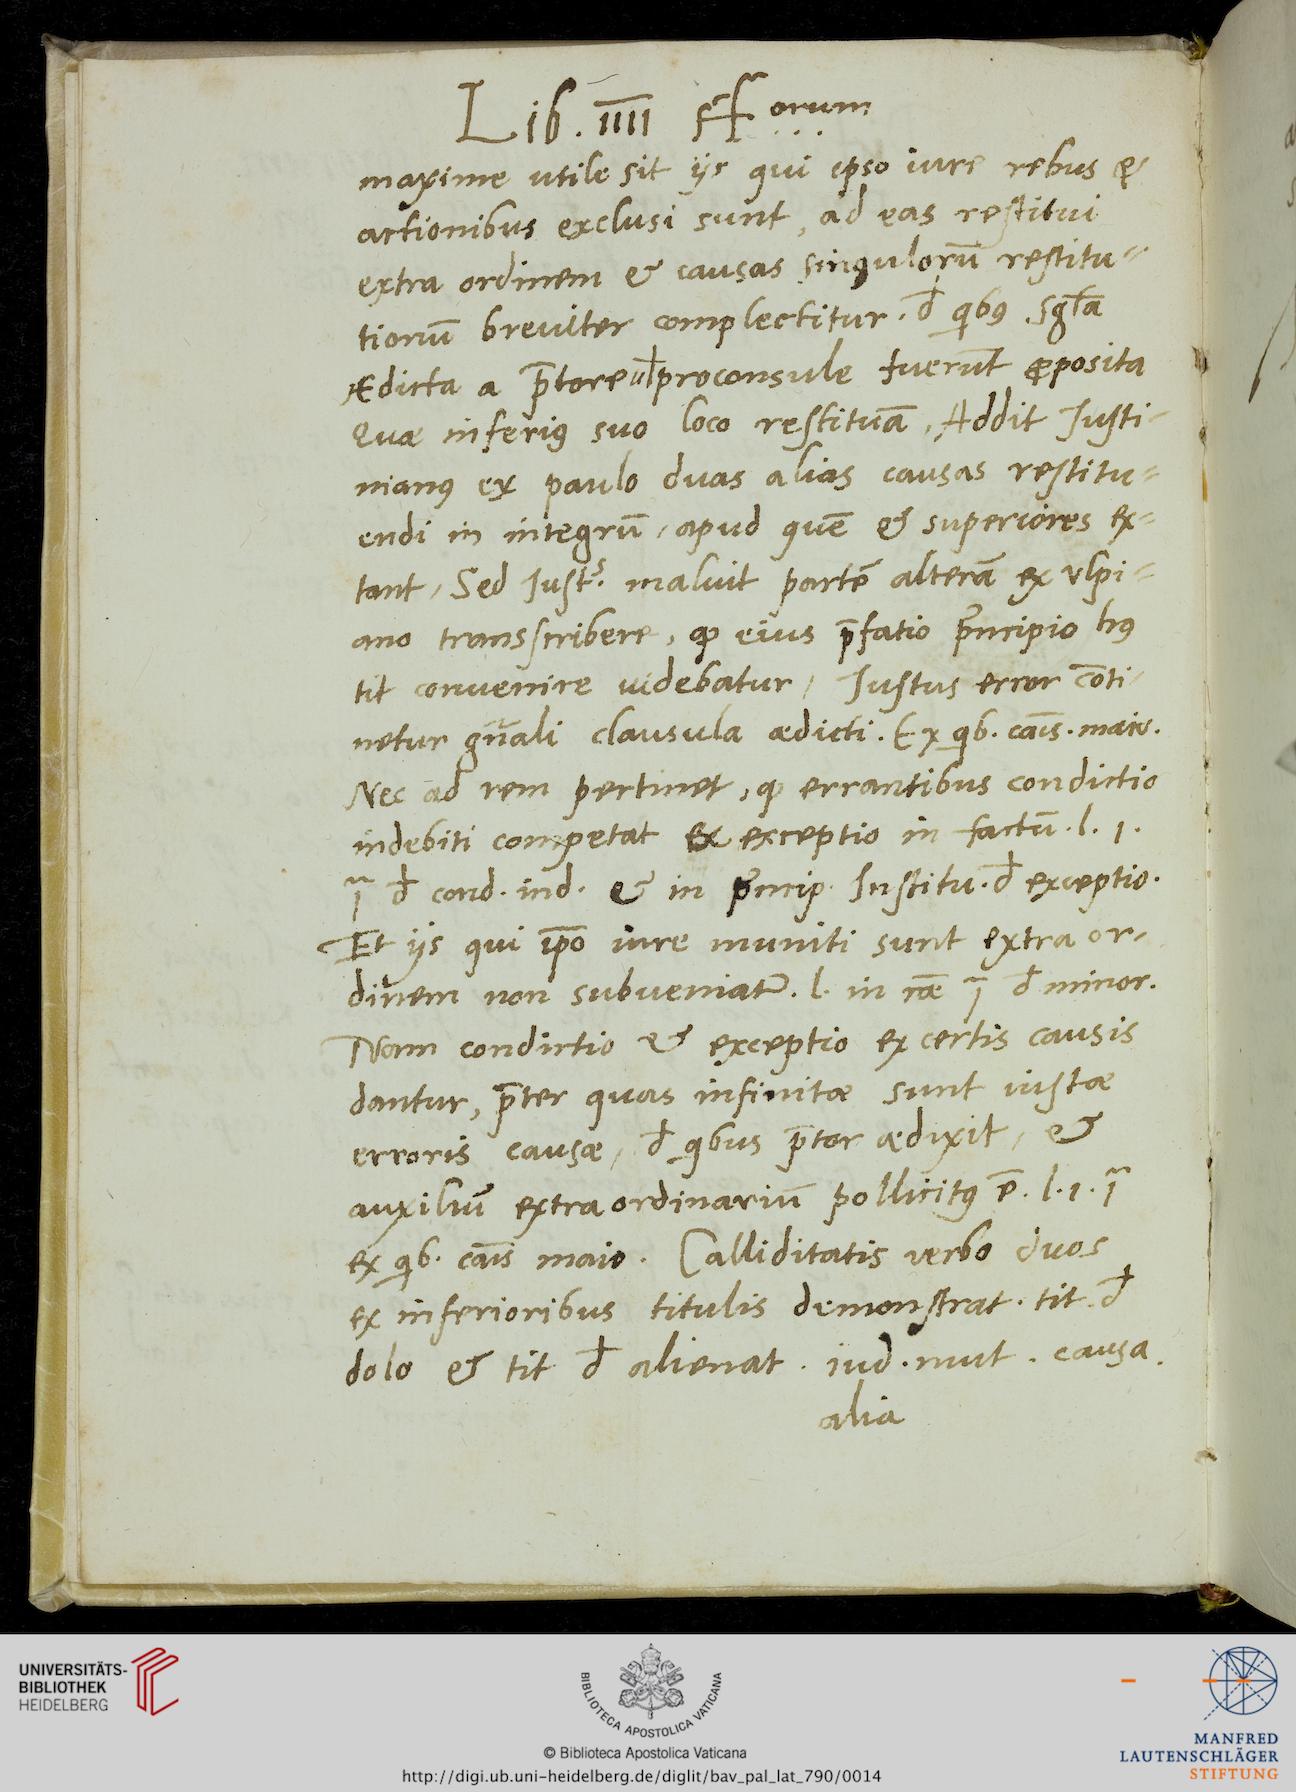 Lib. IIII ff orum
maxime utile sit ijs qui ipso iure rebus &
actionibus exclusi sunt, ad eas restitui
extra ordinem & causas singulorū restitu=
tionū breuiter complectitur. đ qibꝯ sgła
Ædicta a p̄tore uł proconsule fuerūt ꝓposita
Quæ inferiꝯ suo loco restituā, Addit Justi-
nianꝯ ex paulo duas alias causas restitu=
endi in integrū, apud quē & superiores ex=
tant, Sed Justs. maluit partē alterā ex vlpi=
ano transscribere, ꝙ eius p̄fatio p̄ncipio hꝯ
tit convenire uidebatur, Justus error cōti-
netur gn̄ali clausula ædicti. Ex qib. cāis. maio.
Nec ad rem pertinet, ꝙ errantibus condictio
indebiti competat ex exceptio in factū. l. 1.
j̄ đ cond. ind. & in p̄ncip. Institu. đ exceptio.
Et ijs qui ip̄o iure muniti sunt extra or-
dinem non subveniatr. l. in cāe j̄ đ minor.
Nam condictio & exceptio ex certis causis
dantur, p̄ter quas infinitæ sunt iustæ
erroris causæ, đ qibus p̄tor ædixit, &
auxiliū extraordinariū pollicitꝯ ē. l. 1. j̄
ex qib. cāis maio. Calliditatis verbo duos
ex inferioribus titulis demonstrat. tit. đ
dolo & tit đ alienat. iud. mut. causa.
alia
UNIVERSITÄTS-
BIBLIOTHEK
HEIDELBERG
BIBLIOTECA APOSTOLICA VATICANA
© Biblioteca Apostolica Vaticana
http://digi.ub.uni-heidelberg.de/diglit/bav_pal_lat_790/0014
MANFRED
LAUTENSCHLÄGER
STIFTUNG